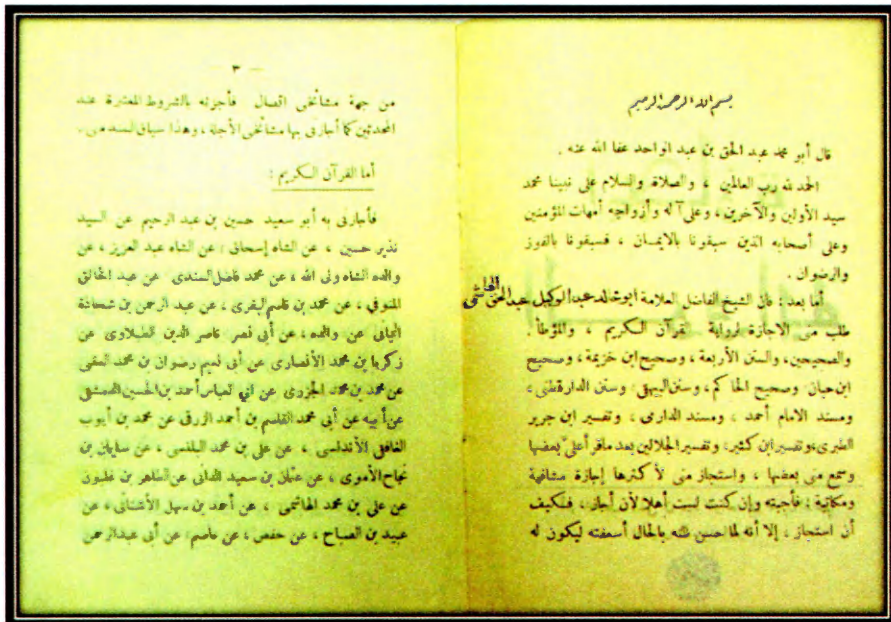 بسم الله الرحمن الرحيم
قال أبو محمد عبد الحق بن عبد الواحد عفا الله عنه .
الحمد لله رب العالمين ، والصلاة والسلام على نبينا محمد
سيد الأولين والآخرين ، وعلى آله وأزواجه أمهات المؤمنين
وعلى أصحابه الذين سبقونا بالايمان ، فسبقونا بالفوز
والرضوان .
أما بعد : فان الشيخ الفاضل العلامة ابو خالد عبد الوكيل عبد الحق الهاشمي
طلب منى الاجازة لرواية القرآن الكريم ، والمؤطأ .
والصحيحين، والسنن الأربعة ، وصحيح ابن خزيمة ، وصحيح
ابن حبان وصحيح الحاكم ، وسنن البيهقى ، وسنن الدارقطنى ،
ومسند الامام أحمد ، ومسند الدارى ، وتفسير ابن جرير
الطبرى، وتفسير ابن كثير، وتفسير الجلالين بعد ماقرأ على بعضها
وسمع منى بعضها ، واستجاز منى لأكثرها إجازة مشافهة
ومكاتبة ؛ فأجبته وإن كنت لست أهلا لأن أجاز ، فكيف
أن استجاز ، إلا أنه لما حسن ظنه بالحال أسعفته ليكون له
— ٣
من جهة مشائخى اتصال فأجزته بالشروط المعتبرة عند
المحدثين كما أجازنى بها مشائخى الأجلة ، وهذا سياق السند منى .
أما القرآن الكريم :
فأجازنى به أبو سعيد حسين بن عبد الرحيم عن السيد
نذير حسين ، عن الشاه إسحاق ، عن الشاه عبد العزيز ، عن
والده الشاه ولى الله ، عن محمد فاضل السندى عن عبد الخالق
المنوفي ، عن محمد بن قاسم البقرى ، عن عبد الرحمن بن شحاذة
اليمانى عن والده ، عن أبى نصر ناصر الدين الطبلاوى عن
زكريا بن محمد الأنصارى عن أبى نعيم رضوان بن محمد العقبى
عن محمد بن محمد الجزرى عن ابى العباس أحمد بن الحسين الدمشقى
عن أبيه عن أبى محمد القاسم بن أحمد الورقى عن محمد بن أيوب
الغافقى الأندلسى ، عن على بن محمد البلنسى ، عن سليمان بن
نجاح الأموى ، عن عثمان بن سعيد الدانى عن الطاهر بن غلبون
عن على بن محمد الهاشمى ، عن أحمد بن سهل الأشنانى ، عن
عبيد بن الصباح ، عن حفص ، عن عاصم ، عن أبى عبد الرحمن